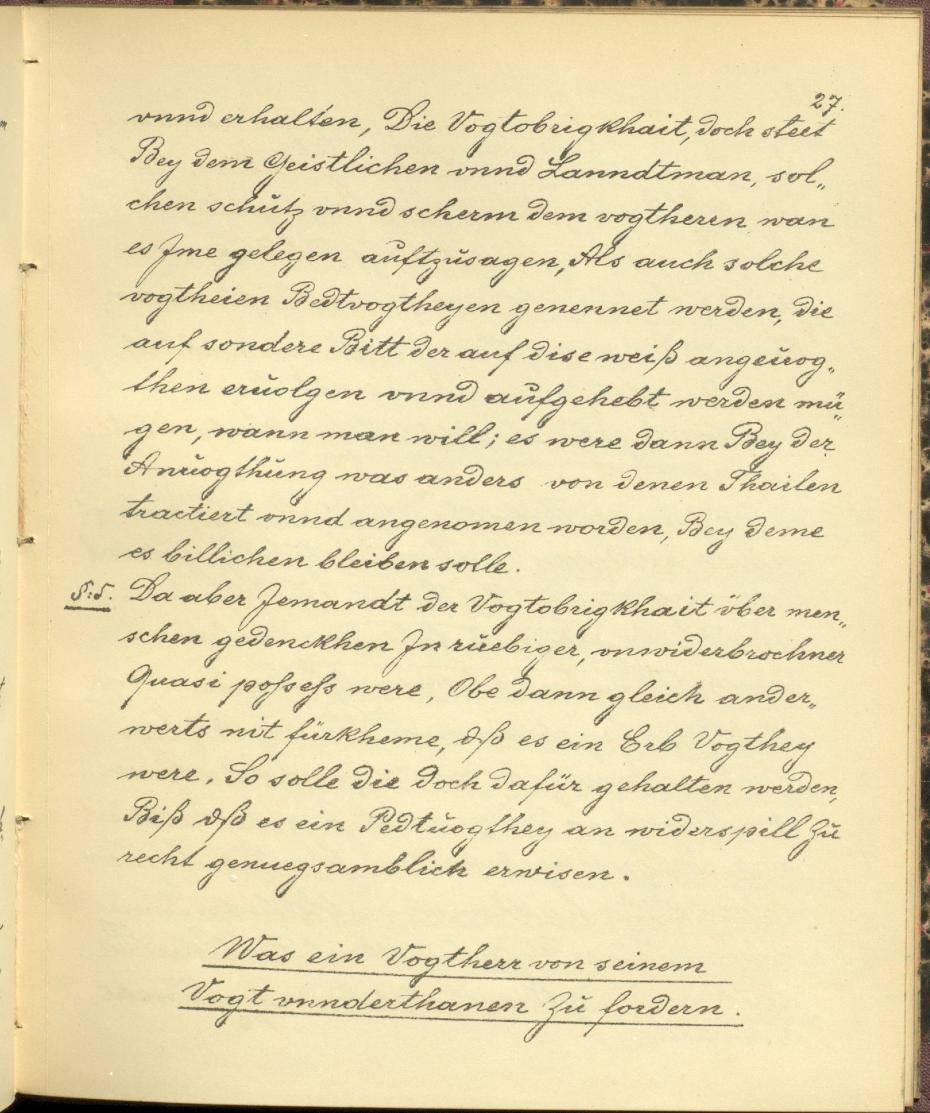 27.
vnnd erhalten, Die Vogtobrigkhait, doch steet
Bey dem Geistlichen vnnd Lanndtman, sol„
chen schŭtz vnnd scherm dem vogtherrn wan
es Jme gelegen aŭftzŭsagen, Als auch solche
vogtheien Bedtvogtheyen genennet werden, die
auf sondere Bitt der auf dise weiß angeŭog„
then erŭolgen vnnd aŭfgehebt werden mü„
gen, wann man will; es were dann Bey der
Anŭogthŭng was anders von denen Thailen
tractiert vnnd angenomen worden, Bey deme
es billichen bleiben solle.
§:5. Da aber Jemandt der Vogtobrigkhait über men„
schen gedenckhen Jn rŭebiger, vnwiderbrochner
Quasi possess were, Obe dann gleich ander„
werts nit fürkheme, dß es ein Erb Vogthey
were. So solle die doch dafür gehalten werden,
Biß dß es ein Pedtŭogthey an widerspill Zŭ
recht genuegsamblich erwisen.
Was ein Vogtherr von seinem
Vogt vnnderthanen Zŭ fordern.